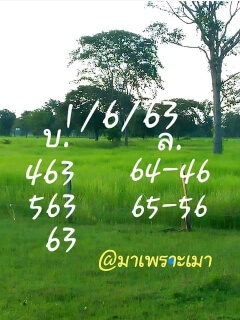 1/6/63
บ. ล.
463 64-46
563 65-56
63
@มาเพราะเมา